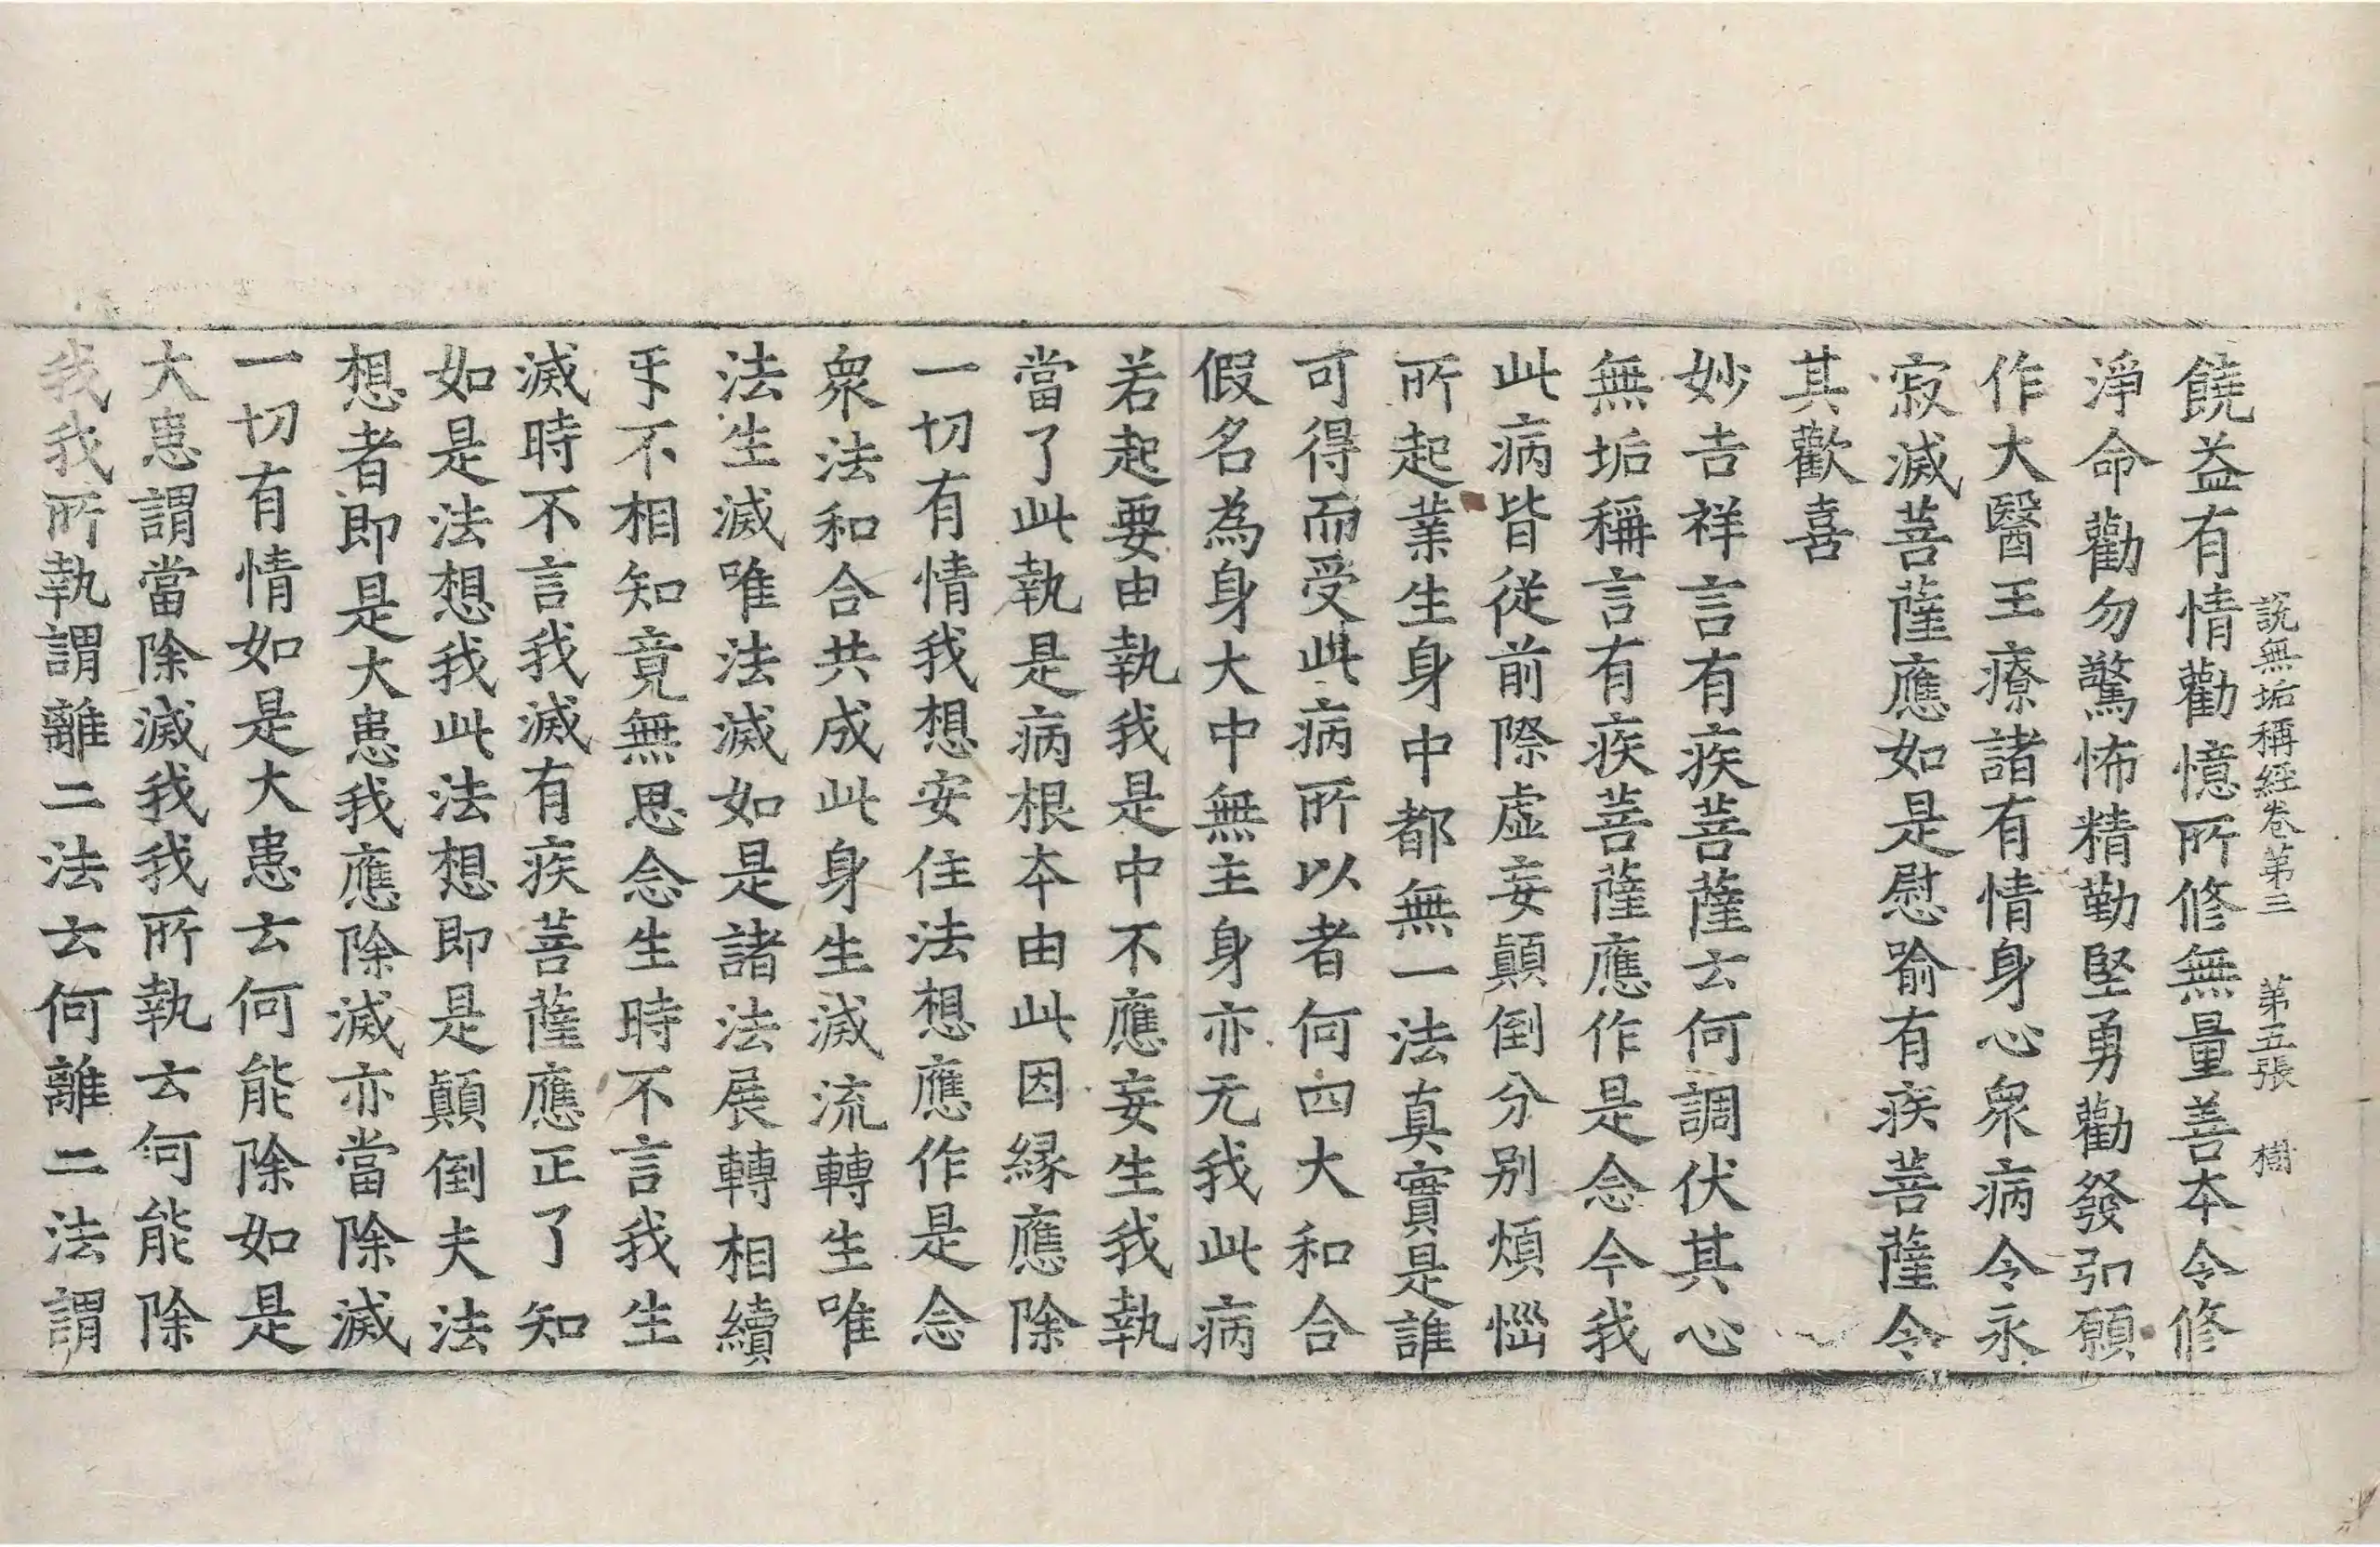 說無垢稱經卷第三 第五張 樹
饒益有情勸憶所修無量善本令修
淨命勸勿驚怖精勤堅勇勸發弘願
作大醫王療諸有情身心衆病令永
寂滅菩薩應如是慰喻有疾菩薩令
其歡喜
妙吉祥言有疾菩薩云何調伏其心
無垢稱言有疾菩薩應作是念今我
此病皆從前際虛妄顛倒分别煩惱
所起業生身中都無一法真實是誰
可得而受此病所以者何四大和合
假名為身大中無主身亦无我此病
若起要由執我是中不應妄生我執
當了此執是病根本由此因縁應除
一切有情我想安住法想應作是念
衆法和合共成此身生滅流轉生唯
法生滅唯法滅如是諸法展轉相續
㸦不相知竟無思念生時不言我生
滅時不言我滅有疾菩薩應正了知
如是法想我此法想即是顛倒夫法
想者即是大患我應除滅亦當除滅
一切有情如是大患云何能除如是
大患謂當除滅我我所執云何能除
我我所執謂離二法云何離二法謂